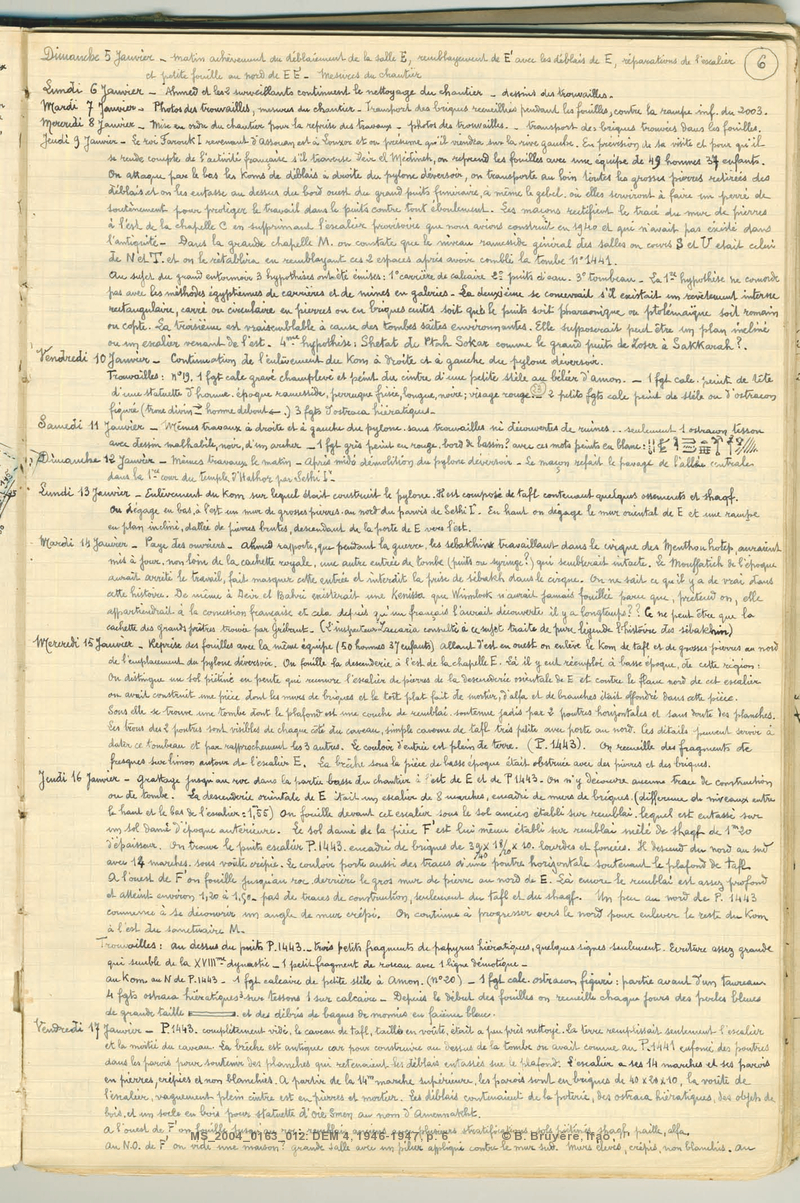 6
Dimanche 5 Janvier _ Matin achèvement du déblaiement de la salle E, remblayement de E' avec les déblais de E, réparations de l'escalier
et petite fouille au nord de E E'_ Mesures du chantier
Lundi 6 Janvier _ Ahmed et les 2 surveillants continuent le nettoyage du chantier _ dessins des trouvailles_
Mardi 7 Janvier _ Photos des trouvailles, mesures du chantier _ Transport des briques recueillies pendant les fouilles, contre la rampe inf. du 2003.
Mercredi 8 Janvier _ Mise en ordre du chantier pour la reprise des travaux _ photos des trouvailles. _ transport des briques trouvées dans les fouilles.
Jeudi 9 Janvier _ Le roi Farouk I revenant d'Assouan est à Louxor et on présume qu'il viendra sur la rive gauche. En prévision de sa visite et pour qu'il
se rende compte de l'activité française s'il traverse Deir el Médineh, on reprend les fouilles avec une équipe de 49 hommes 37 enfants.
On attaque par le bas les Koms de déblais à droite du pylone déversoir, on transporte au loin toutes les grosses pierres retirées des
déblais et on les entasse au dessus du bord ouest du grand puits funéraire, à même le gebel, où elles serviront à faire un perré de
soutènement pour protéger le travail dans le puits contre tout éboulement. Les maçons rectifient le tracé du mur de pierres
à l'est de la chapelle C en supprimant l'escalier provisoire que nous avions construit en 1940 et qui n'avait pas existé dans
l'antiquité _ Dans la grande chapelle M. on constate que le niveau ramesside général des salles ou cours S et U était celui
de N et T. et on le rétablira en remblayant ces 2 espaces après avoir comblé la tombe N° 1441.
Au sujet du grand entonnoir 3 hypothèses ont été émises : 1° carrière de calcaire 2° puits d'eau _ 3° tombeau _ La 1ère hypothèse ne concorde
pas avec les méthodes égyptiennes de carrières et de mines en galeries _ La deuxième se concevrait s'il existait un revêtement interne
rectangulaire, carré ou circulaire en pierres ou en briques cuites soit que le puits soit pharaonique ou ptolémaïque soit romain
ou copte. La troisième est vraisemblable à cause des tombes saïtes environnantes. Elle supposerait peut être un plan incliné
ou un escalier venant de l'est. _ 4ème hypothèse : Shetat de Ptah Sokar comme le grand puits de Zoser à Sakkarah ?.
Vendredi 10 Janvier _ Continuation de l'enlèvement du Kom à droite et à gauche du pylone déversoir.
Trouvailles : n° 19. 1 fgt calc gravé champlevé et peint du cintre d'une petite stèle au bélier d'Amon. _ 1 fgt calc. peint de tête
d'une statuette d'homme. époque ramesside, perruque frisée, longue, noire ; visage rouge _ 2 petits fgts calc peint de stèle ou d'ostracon
figuré (trone divin homme debout .) 3 fgts d'ostraca hiératiques _
Samedi 11 Janvier _ Mêmes travaux à droite et à gauche du pylone. sans trouvailles ni découvertes de ruines. _ seulement 1 ostracon tesson
avec dessin malhabile, noir, d'un archer _ 1 fgt grès peint en rouge, bord de bassin ? avec ces mots peints en blanc :
Dimanche 12 Janvier _ Mêmes travaux le matin _ Après midi démolition du pylone déversoir _ Le maçon refait le pavage de l'allée centrale
dans la 1ère cour du temple d'Hathor par Sethi I_
Lundi 13 Janvier _ Enlèvement du Kom sur lequel était construit le pylone. Il est composé de tafl contenant quelques ossements et shagf.
On dégage en bas, à l'est un mur de grosses pierres au nord du parvis de Sethi I. En haut on dégage le mur oriental de E et une rampe
en plan incliné, dallée de pierres brutes, descendant de la porte de E vers l'est.
Mardi 14 Janvier _ Paye des ouvriers _ Ahmed rapporte, que pendant la guerre, les sebakhins travaillant dans le cirque des Menthou hotep, auraient
mis à jour, non loin de la cachette royale, une autre entrée de tombe (puits ou syringe ?) qui semblerait intacte. Le Mouffatich de l'époque
aurait arrêté le travail, fait masquer cette entrée et interdit la prise de sebakh dans le cirque. On ne sait ce qu'il y a de vrai dans
cette histoire. De même à Deir el Bahri existerait une Kenissa que Winlock n'aurait jamais fouillée parce que, prétend on, elle
appartiendrait à la concession française et cela depuis qu'un français l'aurait découverte il y a longtemps ? ? Ce ne peut être que la
cachette des grands prêtres trouvée par Grébaut. _ (L'inspecteur Zacaria consulté à ce sujet traite de pure légende l'histoire des sebakhin)
Mercredi 15 Janvier _ Reprise des fouilles avec la même équipe (50 hommes 37 enfants) Allant d'est en ouest on enlève le Kom de tafl et de grosses pierres au nord
de l'emplacement du pylone déversoir. On fouille la descenderie à l'est de la chapelle E. Là il y eut réemploi à basse époque, de cette région :
On distingue un sol piétiné en pente qui recouvre l'escalier de pierres de la descenderie orientale de E et contre le flanc nord de cet escalier
on avait construit une pièce dont les murs de briques et le toit plat fait de mortier, d'alfa et de branches était effondré dans cette pièce.
Sous elle se trouve une tombe dont le plafond est une couche de remblai soutenue jadis par 2 poutres horizontales et sans doute des planches.
Les trous des 2 poutres sont visibles de chaque côté du caveau, simple caverne de tafl très petite avec porte au nord. Ces détails peuvent servir à
dater ce tombeau et par rapprochement les 3 autres. Le couloir d'entrée est plein de terre. (P. 1443). On recueille des fragments de
fresques sur limon autour de l'escalier E. La brêche sous la pièce de basse époque était obstruée avec des pierres et des briques.
Jeudi 16 Janvier _ Grattage jusqu'au roc dans la partie basse du chantier à l'est de E et de P 1443. On n'y découvre aucune trace de construction
ou de tombe. La descenderie orientale de E était un escalier de 8 marches, encadré de murs de briques. (différence de niveaux entre
le haut et le bas de l'escalier : 1m,55) On fouille devant cet escalier sous le sol ancien établi sur remblai lequel est entassé sur
un sol damé d'époque antérieure. Le sol damé de la pièce F' est lui même établi sur remblai mêlé de shagf de 1m20
d'épaisseur. On trouve le puits escalier P. 1443. encadré de briques de 39/40 x 18/20 x 10. lourdes et foncées. Il descend du nord au sud
avec 14 marches. sous voûte crépie. Le couloir porte aussi des traces d'une poutre horizontale soutenant le plafond de tafl
A l'ouest de F' on fouille jusqu'au roc derrière le gros mur de pierre au nord de E. Là encore le remblai est assez profond
et atteint environ 1,20 à 1,50. pas de traces de construction, seulement du tafl et du shagf. Un peu au nord de P. 1443
commence à se découvrir un angle de mur crépi. On continue à progresser vers le nord pour enlever le reste du Kom
à l'est du sanctuaire M.
Trouvailles : au dessus du puits P. 1443 _ trois petits fragments de papyrus hiératiques, quelques signes seulement. Ecriture assez grande
qui semble de la XVIIIme dynastie _ 1 petit fragment de roseau avec 1 ligne démotique _
au Kom au N de P. 1443 _ 1 fgt calcaire de petite stèle à Amon. (n° 20) _ 1 fgt calc. ostracon figuré : partie avant d'un taureau.
4 fgts ostraca hiératiques 3 sur tessons 1 sur calcaire _ Depuis le début des fouilles on recueille chaque jour des perles bleues
de grande taille et des débris de bagues de momies en faïence bleue.
Vendredi 17 Janvier _ P. 1443. complètement vidé, le caveau de tafl, taillé en voûte, était à peu près nettoyé. La terre remplissait seulement l'escalier
et la moitié du caveau. La brêche est antique car pour construire au dessus de la tombe on avait comme au P. 1441 enfoncé des poutres
dans les parois pour soutenir des planches qui retenaient les déblais entassés sur le plafond. L'escalier a ses 14 marches et ses parois
en pierres, crépies et non blanchies. A partir de la 14me marche supérieure, les parois sont en briques de 40 x 20 x 10, la voûte de
l'escalier, vaguement plein cintre est en pierres et mortier. Les déblais contenaient de la poterie, des ostraca hiératiques, des objets de
bois, et un socle en bois pour statuette d'oie Smen au nom d'Amennakht.
A l'ouest de F' on fouille jusqu'au roc, remblais anciens avec plusieurs stratifications, sols piétinés, shagf, paille, alfa.
Au N.O. de F' on vide une maison : grande salle avec un pilier appliqué contre le mur sud. Murs élevés, crépis, non blanchis. Au
MS_2004_0163_012. DEM 4, 1946-1947, p. 6 © B. Bruyère, Ifao